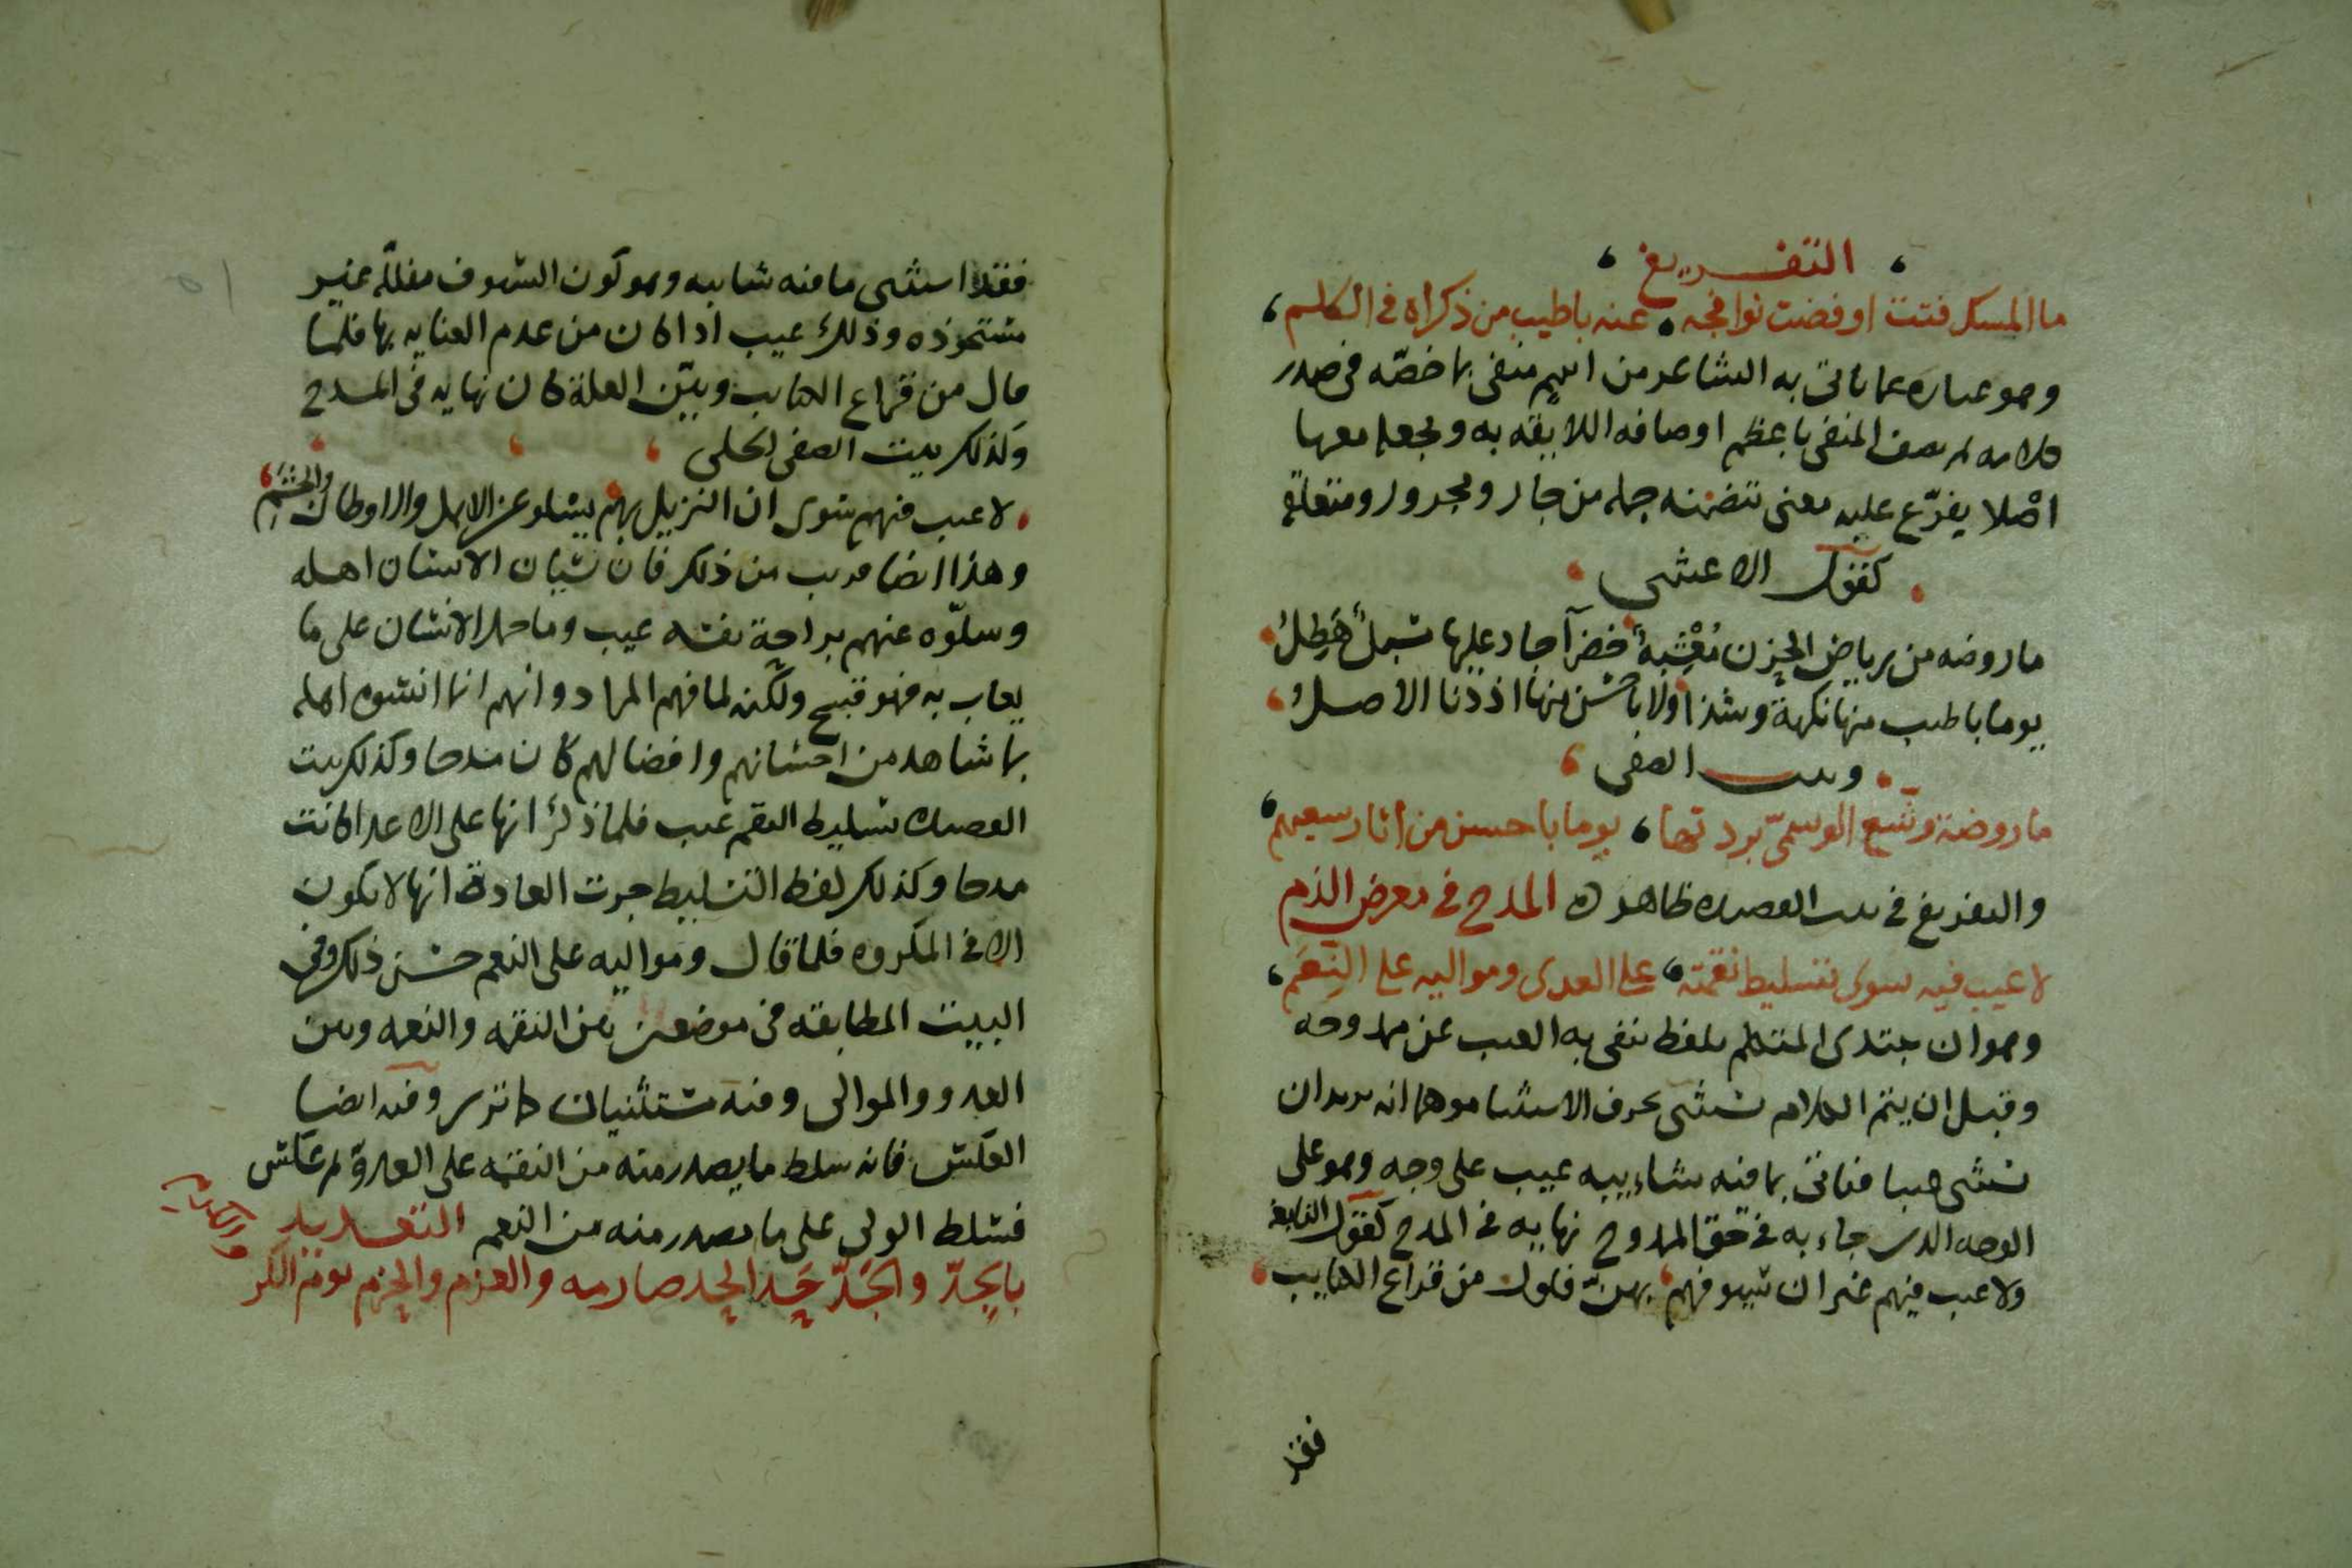 التفريع
ما المسك فتت او فضت نوافجه عنه باطيب من ذكراه في الكلم
وهو عباره عما ياتي به الشاعر من اسم منفي بما خصّه في صدر
كلامه ثم يصف المنفي باعظم اوصافه اللايقه به ويجعلها
اصلا يفرّع عليه معنى تتضمنه جمله من جار ومجرور ومتعلقه
كقول الاعشى
ما روضه من رياض الحزن مُعْشِبةٌ خضرآ جاد عليها مسبلٌ هَطِلُ
يوما باطيب منها نكهة وشذا ولا باحسن منها اذ دنا الاصلُ
وبيت الصفي
ما روضة وشّع الوسميّ بردتها يوما باحسن من اثار سعيهم
والتفريع في بيت القصيده ظاهر المدح في معرض الذم
لا عيب فيه سوى تسليط نقمته على العدى ومواليه على النِعَم
وهو ان يبتدي المتكلم بلفظ ينفي به العيب عن ممدوحه
وقبل ان يتم الكلام يستثني بحرف الاستثنا موهما انه يريد ان
يستثني فياتي بما فيه شاييبه عيب على وجه وهو على
الوجه الذي جاء به في حق الممدوح نهايه في المدح كقول النابغه
ولا عيب فيهم غير ان سيوفهم بهنّ فلول من قراع الكتايب
فقد
فقد استثنى ما فيه شايبه وهو كون السيوف مفللة غير
مستحوذه وذلك عيب اذا كان من عدم العنايه بها فلما
قال من قراع الكتايب وبيّن العلة كان نهايه في المدح
وكذلك بيت الصفي الحلي
لا عيب فيهم سوى ان النزيل بهم يسلو عن الاهل والاوطان والحشم
وهذا ايضا قريب من ذلك فان نسيان الانسان اهله
وسلوّه عنهم براحة نفسه عيب وما حمل الانسان على ما
يعاب به فهو قبيح ولكنه لما فهم المراد وانهم انما انسوه اهله
بما شاهد من احسانهم وافضالهم كان مدحا وكذلك بيت
القصيده تسليط النقم عيب فلما ذكر انها على الاعدا كانت
مدحا وكذلك لفظ التسليط جرت العادة انها لا تكون
الا في المكروه فلما قال ومواليه على النعم حسن ذلك وفي
البيت المطابقه في موضعين بين النقمه والنعمه وبين
العدو والموالي وفيه مستثنيان كما ترى وفيه ايضا
العكس فانه سلط ما يصدر منه من النقمه على العدوّ ثم عكس
فسلط الولي على ما يصدر منه من النعم التعديد
بالجِدّ والجَدّ حَد الحد صارمه والعزم والحزم يوم الكر
والكرم